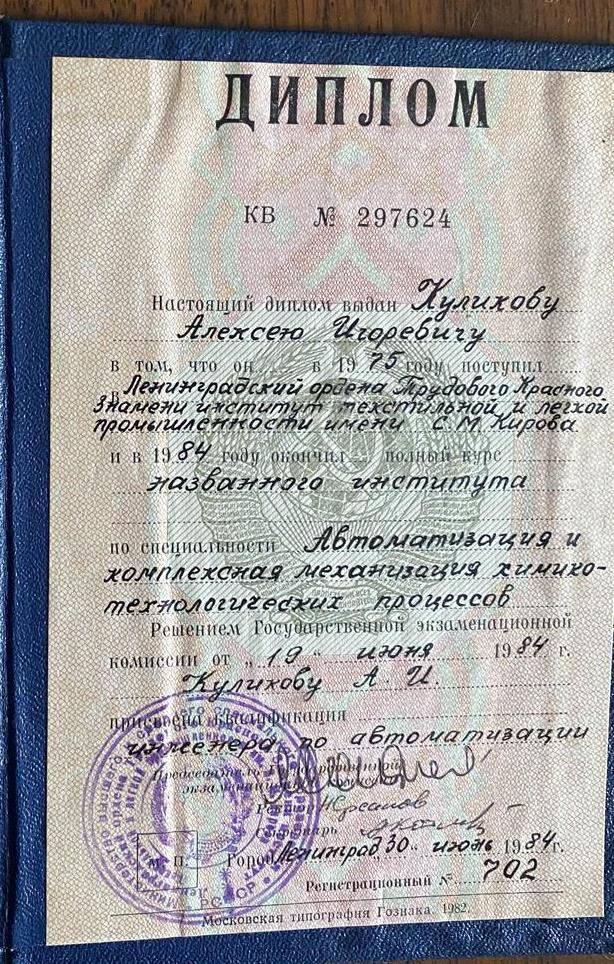 ДИПЛОМ
КВ № 297624
Настоящий диплом выдан Куликову
Алексею Игоревичу
в том, что он в 1975 году поступил
в Ленинградский ордена Трудового Красного
Знамени институт текстильной и легкой
промышленности имени С.М. Кирова
и в 1984 году окончил полный курс
названного института
по специальности Автоматизация и
комплексная механизация химико-
технологических процессов
Решением Государственной экзаменационной
комиссии от „19" июня 1984 г.
Куликову А. И.
присвоена квалификация
инженера по автоматизации
Председатель Государственной
экзаменационной комиссии
Ректор
Секретарь
М. П. Город Ленинград, 30 " июнь 1984г.
Регистрационный № 702
Московская типография Гознака. 1982.